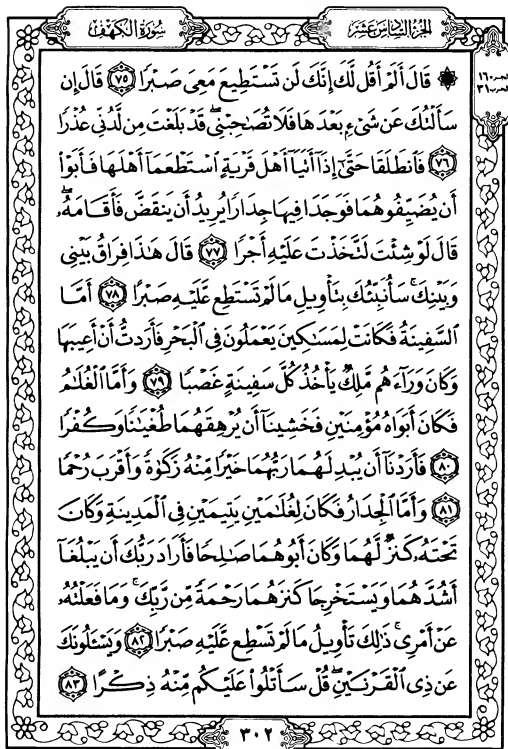 سُورَةُ الكَهْف
الجُزْءُ السَّادِسَ عَشَرَ
الجزء ١٦
الحزب ٣١
۞ قَالَ أَلَمْ أَقُل لَّكَ إِنَّكَ لَن تَسْتَطِيعَ مَعِىَ صَبْرًا ٧٥ قَالَ إِن
سَأَلْتُكَ عَن شَىْءٍۭ بَعْدَهَا فَلَا تُصَٰحِبْنِى ۖ قَدْ بَلَغْتَ مِن لَّدُنِّى عُذْرًا
٧٦ فَٱنطَلَقَا حَتَّىٰٓ إِذَآ أَتَيَآ أَهْلَ قَرْيَةٍ ٱسْتَطْعَمَآ أَهْلَهَا فَأَبَوْا۟
أَن يُضَيِّفُوهُمَا فَوَجَدَا فِيهَا جِدَارًا يُرِيدُ أَن يَنقَضَّ فَأَقَامَهُۥ ۖ
قَالَ لَوْ شِئْتَ لَتَّخَذْتَ عَلَيْهِ أَجْرًا ٧٧ قَالَ هَٰذَا فِرَاقُ بَيْنِى
وَبَيْنِكَ ۚ سَأُنَبِّئُكَ بِتَأْوِيلِ مَا لَمْ تَسْتَطِع عَّلَيْهِ صَبْرًا ٧٨ أَمَّا
ٱلسَّفِينَةُ فَكَانَتْ لِمَسَٰكِينَ يَعْمَلُونَ فِى ٱلْبَحْرِ فَأَرَدتُّ أَنْ أَعِيبَهَا
وَكَانَ وَرَآءَهُم مَّلِكٌ يَأْخُذُ كُلَّ سَفِينَةٍ غَصْبًا ٧٩ وَأَمَّا ٱلْغُلَٰمُ
فَكَانَ أَبَوَاهُ مُؤْمِنَيْنِ فَخَشِينَآ أَن يُرْهِقَهُمَا طُغْيَٰنًا وَكُفْرًا
٨٠ فَأَرَدْنَآ أَن يُبْدِلَهُمَا رَبُّهُمَا خَيْرًا مِّنْهُ زَكَوٰةً وَأَقْرَبَ رُحْمًا
٨١ وَأَمَّا ٱلْجِدَارُ فَكَانَ لِغُلَٰمَيْنِ يَتِيمَيْنِ فِى ٱلْمَدِينَةِ وَكَانَ
تَحْتَهُۥ كَنزٌ لَّهُمَا وَكَانَ أَبُوهُمَا صَٰلِحًا فَأَرَادَ رَبُّكَ أَن يَبْلُغَآ
أَشُدَّهُمَا وَيَسْتَخْرِجَا كَنزَهُمَا رَحْمَةً مِّن رَّبِّكَ ۚ وَمَا فَعَلْتُهُۥ
عَنْ أَمْرِى ۚ ذَٰلِكَ تَأْوِيلُ مَا لَمْ تَسْطِع عَّلَيْهِ صَبْرًا ٨٢ وَيَسْـَٔلُونَكَ
عَن ذِى ٱلْقَرْنَيْنِ ۖ قُلْ سَأَتْلُوا۟ عَلَيْكُم مِّنْهُ ذِكْرًا ٨٣
٣٠٢